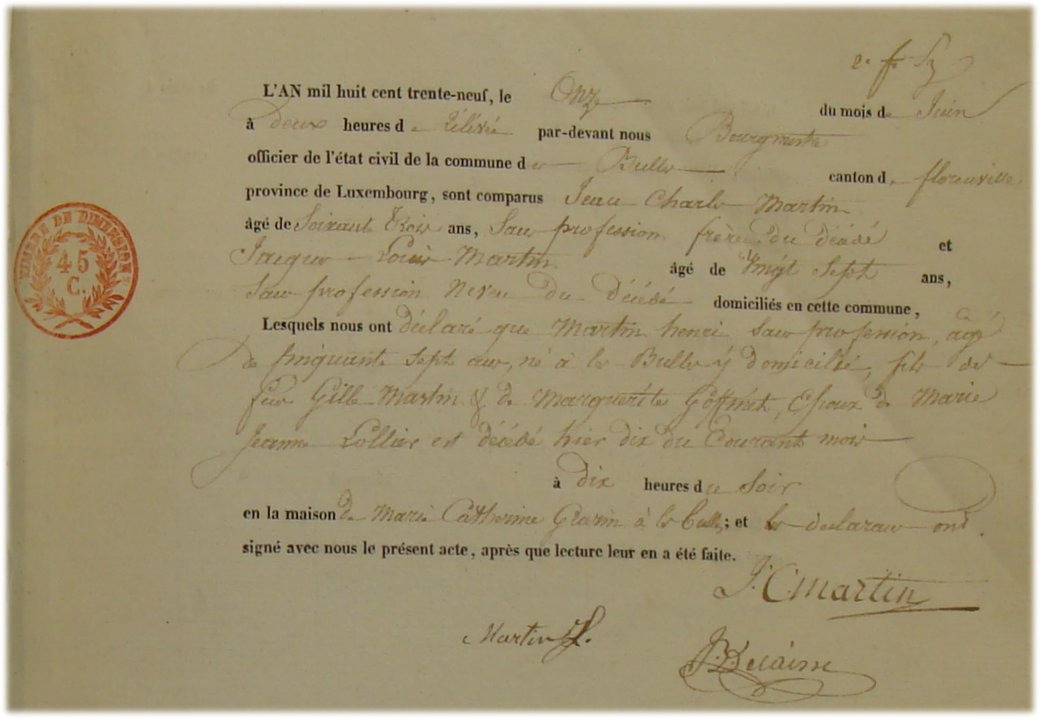 L'AN mil huit cent trente-neuf, le Onze du mois de Juin
à deux heures de rélévée par-devant nous Bourgmestre
officier de l'état civil de la commune de Bulle canton de florenville
province de Luxembourg, sont comparus Jean Charle Martin
âgé de Soixant trois ans, San profession frère du décédé et
Jacque Louis Martin âgé de Vingt Sept ans,
San profession Neveu du décédé domiciliés en cette commune,
Lesquels nous ont déclaré que Martin henri San profession, agé
de Sinquant Sept ans, né à les Bulle y domicilié, fils de
feu Gille Martin & de Marguerite Goffinet, Epoux de Marie
Jeanne Lollier est décédé hier dix du Courant mois
à dix heures du Soir
en la maison de Marie Catherine à les Bulle; et les déclarans ont
signé avec nous le présent acte, après que lecture leur en a été faite.
J. C Martin
Martin JL.
TIMBRE DE DIMENSION
45
C.